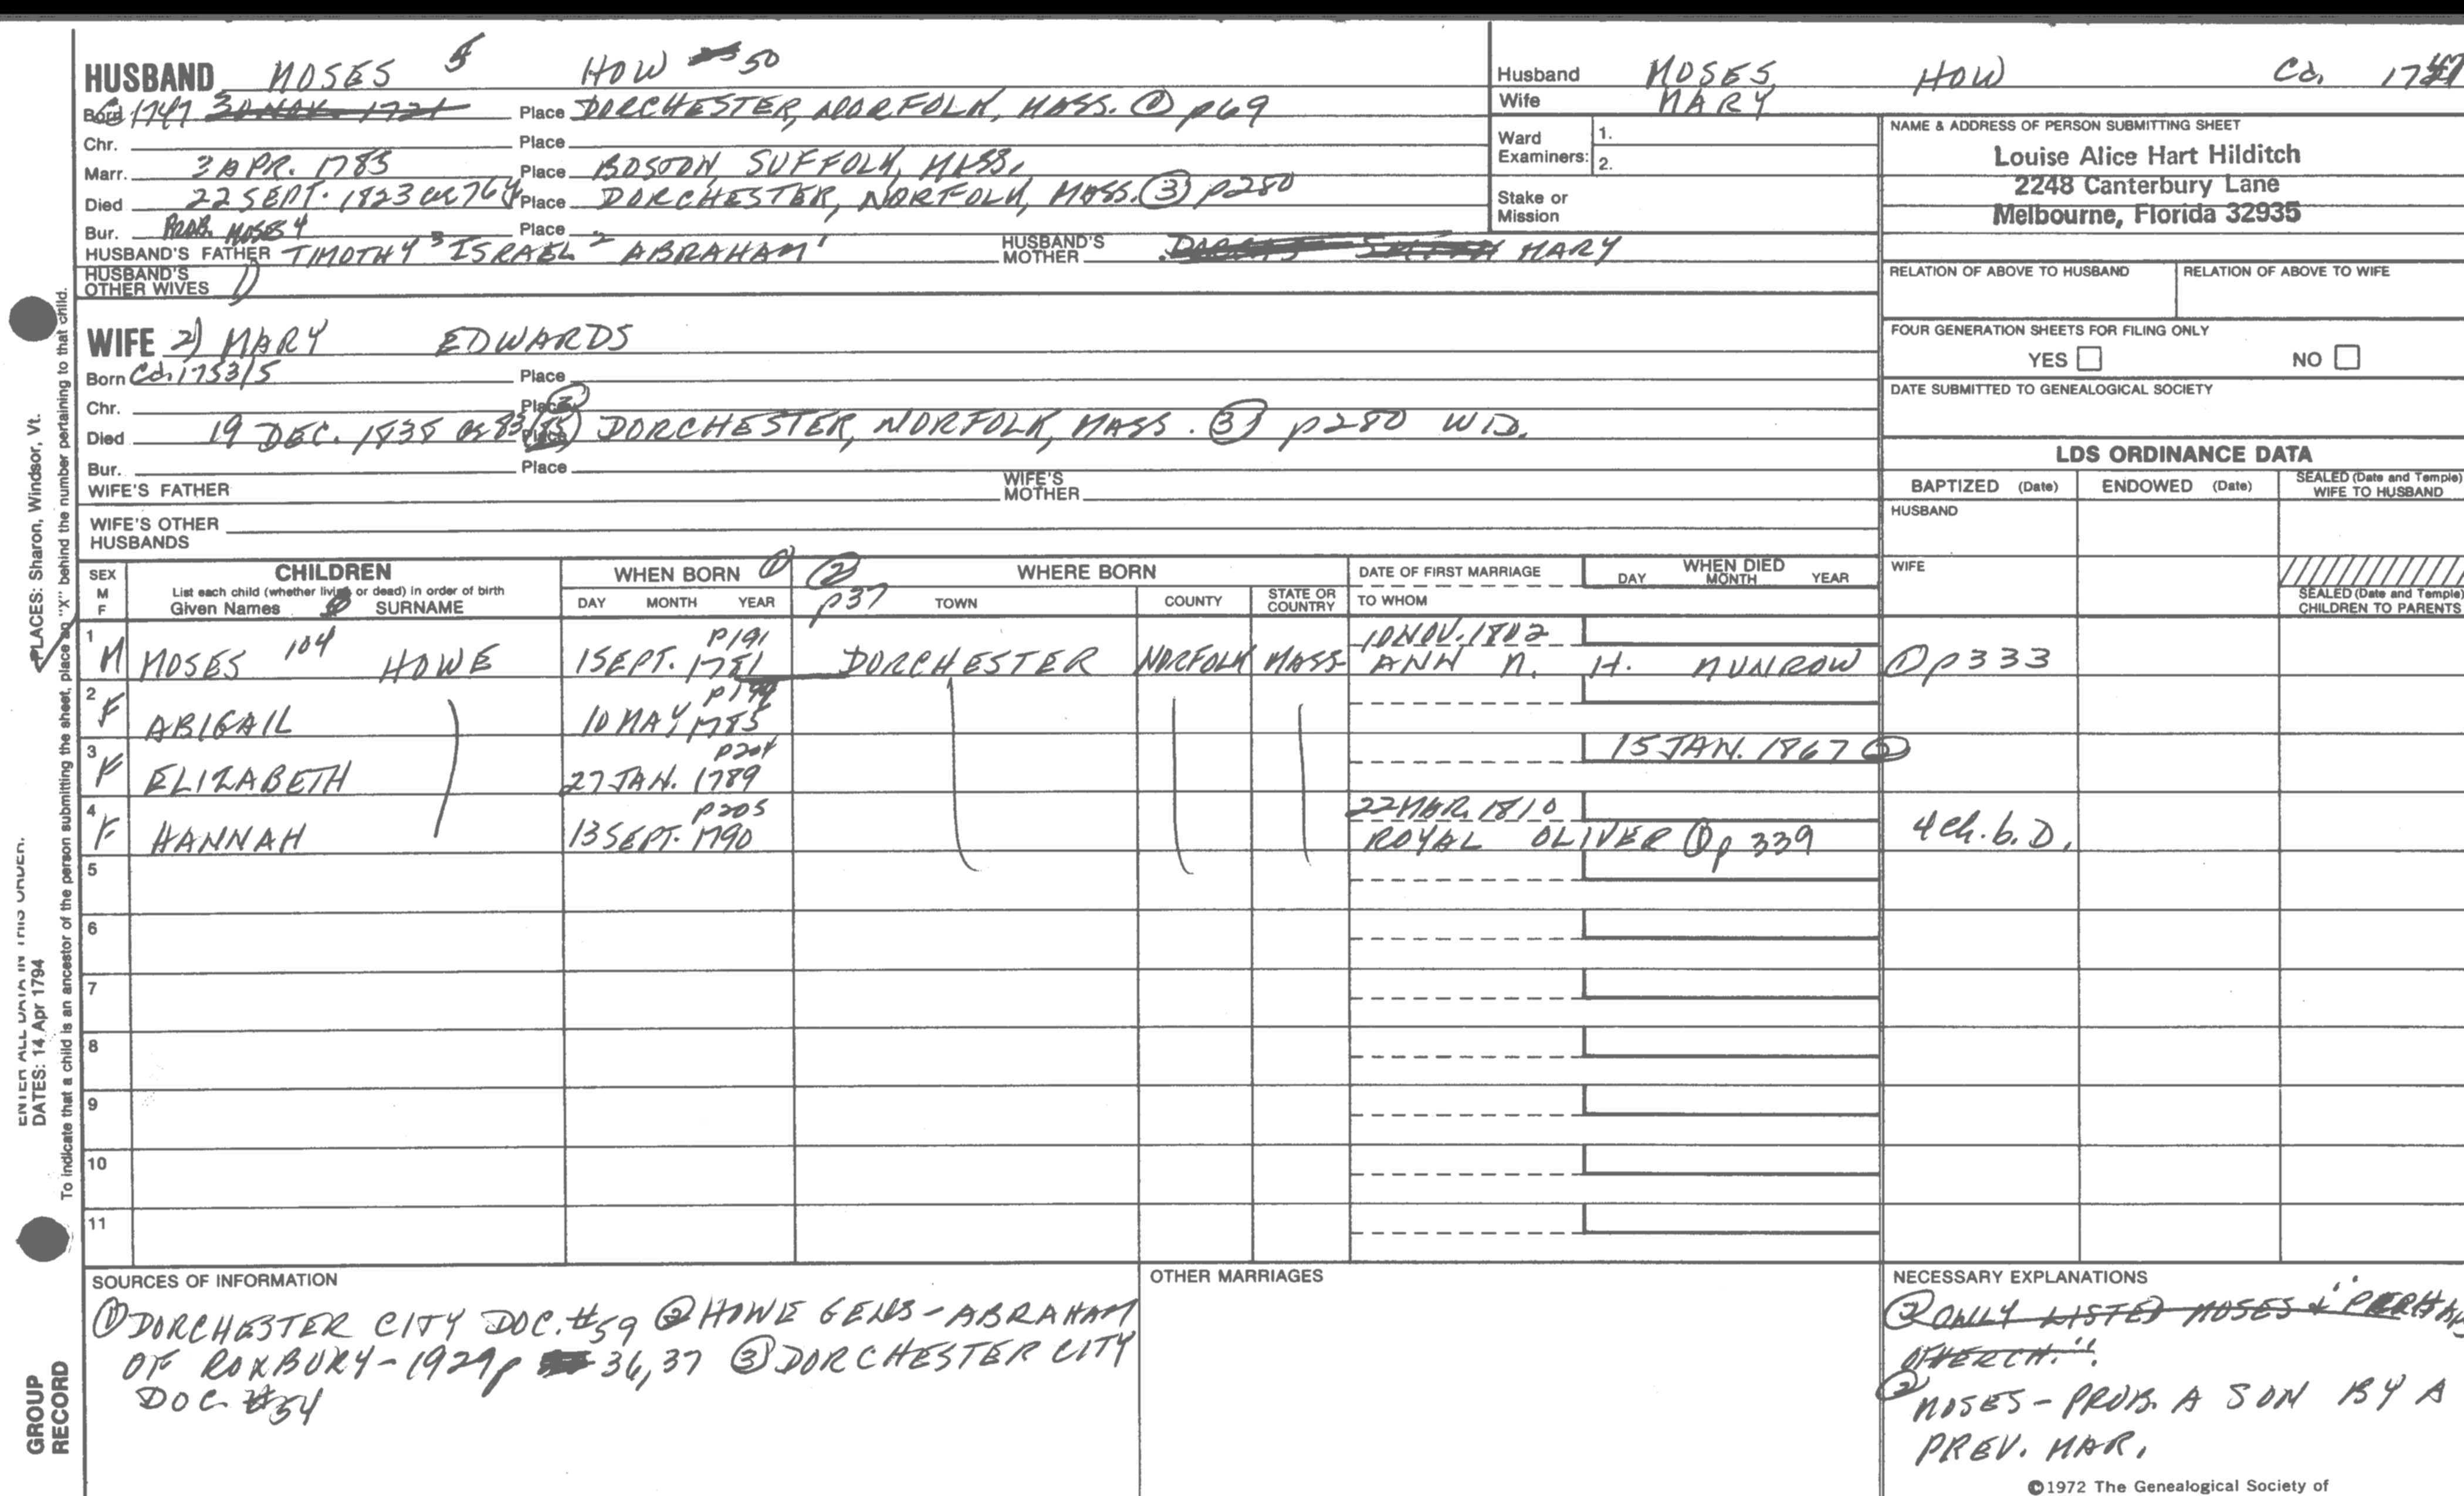 HUSBAND MOSES 5 HOW 50
Born Ca 1747 30 NOV. 1721 Place DORCHESTER, NORFOLK, MASS. ① p69
Chr. Place
Marr. 3 APR. 1783 Place BOSTON, SUFFOLK, MASS.
Died 22 SEPT. 1823 ae 76y Place DORCHESTER, NORFOLK, MASS. ③ p280
Bur. Place
PROB. MOSES 4
HUSBAND'S FATHER TIMOTHY 3 ISRAEL 2 ABRAHAM 1 HUSBAND'S MOTHER MARY
HUSBAND'S OTHER WIVES 1)
WIFE 2) MARY EDWARDS
Born Ca. 1753/5 Place
Chr. Place
Died 19 DEC. 1838 ae 83/85 Place DORCHESTER, NORFOLK, MASS. ③ p280 WID.
Bur. Place
WIFE'S FATHER WIFE'S MOTHER
WIFE'S OTHER HUSBANDS
Husband MOSES HOW Ca. 1747
Wife MARY
Ward Examiners: 1.
2.
Stake or Mission
NAME & ADDRESS OF PERSON SUBMITTING SHEET
Louise Alice Hart Hilditch
2248 Canterbury Lane
Melbourne, Florida 32935
RELATION OF ABOVE TO HUSBAND RELATION OF ABOVE TO WIFE
FOUR GENERATION SHEETS FOR FILING ONLY
YES NO
DATE SUBMITTED TO GENEALOGICAL SOCIETY
LDS ORDINANCE DATA
BAPTIZED (Date) ENDOWED (Date) SEALED (Date and Temple) WIFE TO HUSBAND
HUSBAND
WIFE
SEALED (Date and Temple) CHILDREN TO PARENTS
SEX M F
CHILDREN
List each child (whether living or dead) in order of birth
Given Names SURNAME
WHEN BORN ①
DAY MONTH YEAR
② p37
WHERE BORN
TOWN COUNTY STATE OR COUNTRY
DATE OF FIRST MARRIAGE
TO WHOM
WHEN DIED
DAY MONTH YEAR
1 p191 10 NOV. 1802
M MOSES 104 HOWE 1 SEPT. 1781 DORCHESTER NORFOLK MASS ANN N. H. MUNROW ① p333
2 p199
F ABIGAIL 10 MAY 1785
3 p204 15 JAN. 1867 ②
F ELIZABETH 27 JAN. 1789
4 p205 22 MAR. 1810
F HANNAH 13 SEPT. 1790 ROYAL OLIVER ① p 339 4 ch. b. D.
5
6
7
8
9
10
11
SOURCES OF INFORMATION
① DORCHESTER CITY DOC. #59 ② HOWE GENS - ABRAHAM
OF ROXBURY - 1929 p 36, 37 ③ DORCHESTER CITY
DOC. #54
OTHER MARRIAGES
NECESSARY EXPLANATIONS
② ONLY LISTED MOSES & "PERHAPS
OTHER CH."
② MOSES - PROB. A SON BY A
PREV. MAR.
©1972 The Genealogical Society of
PLACES: Sharon, Windsor, Vt.
ENTER ALL DATA IN THIS ORDER:
DATES: 14 Apr 1794
To indicate that a child is an ancestor of the person submitting the sheet, place an "X" behind the number pertaining to that child.
GROUP
RECORD